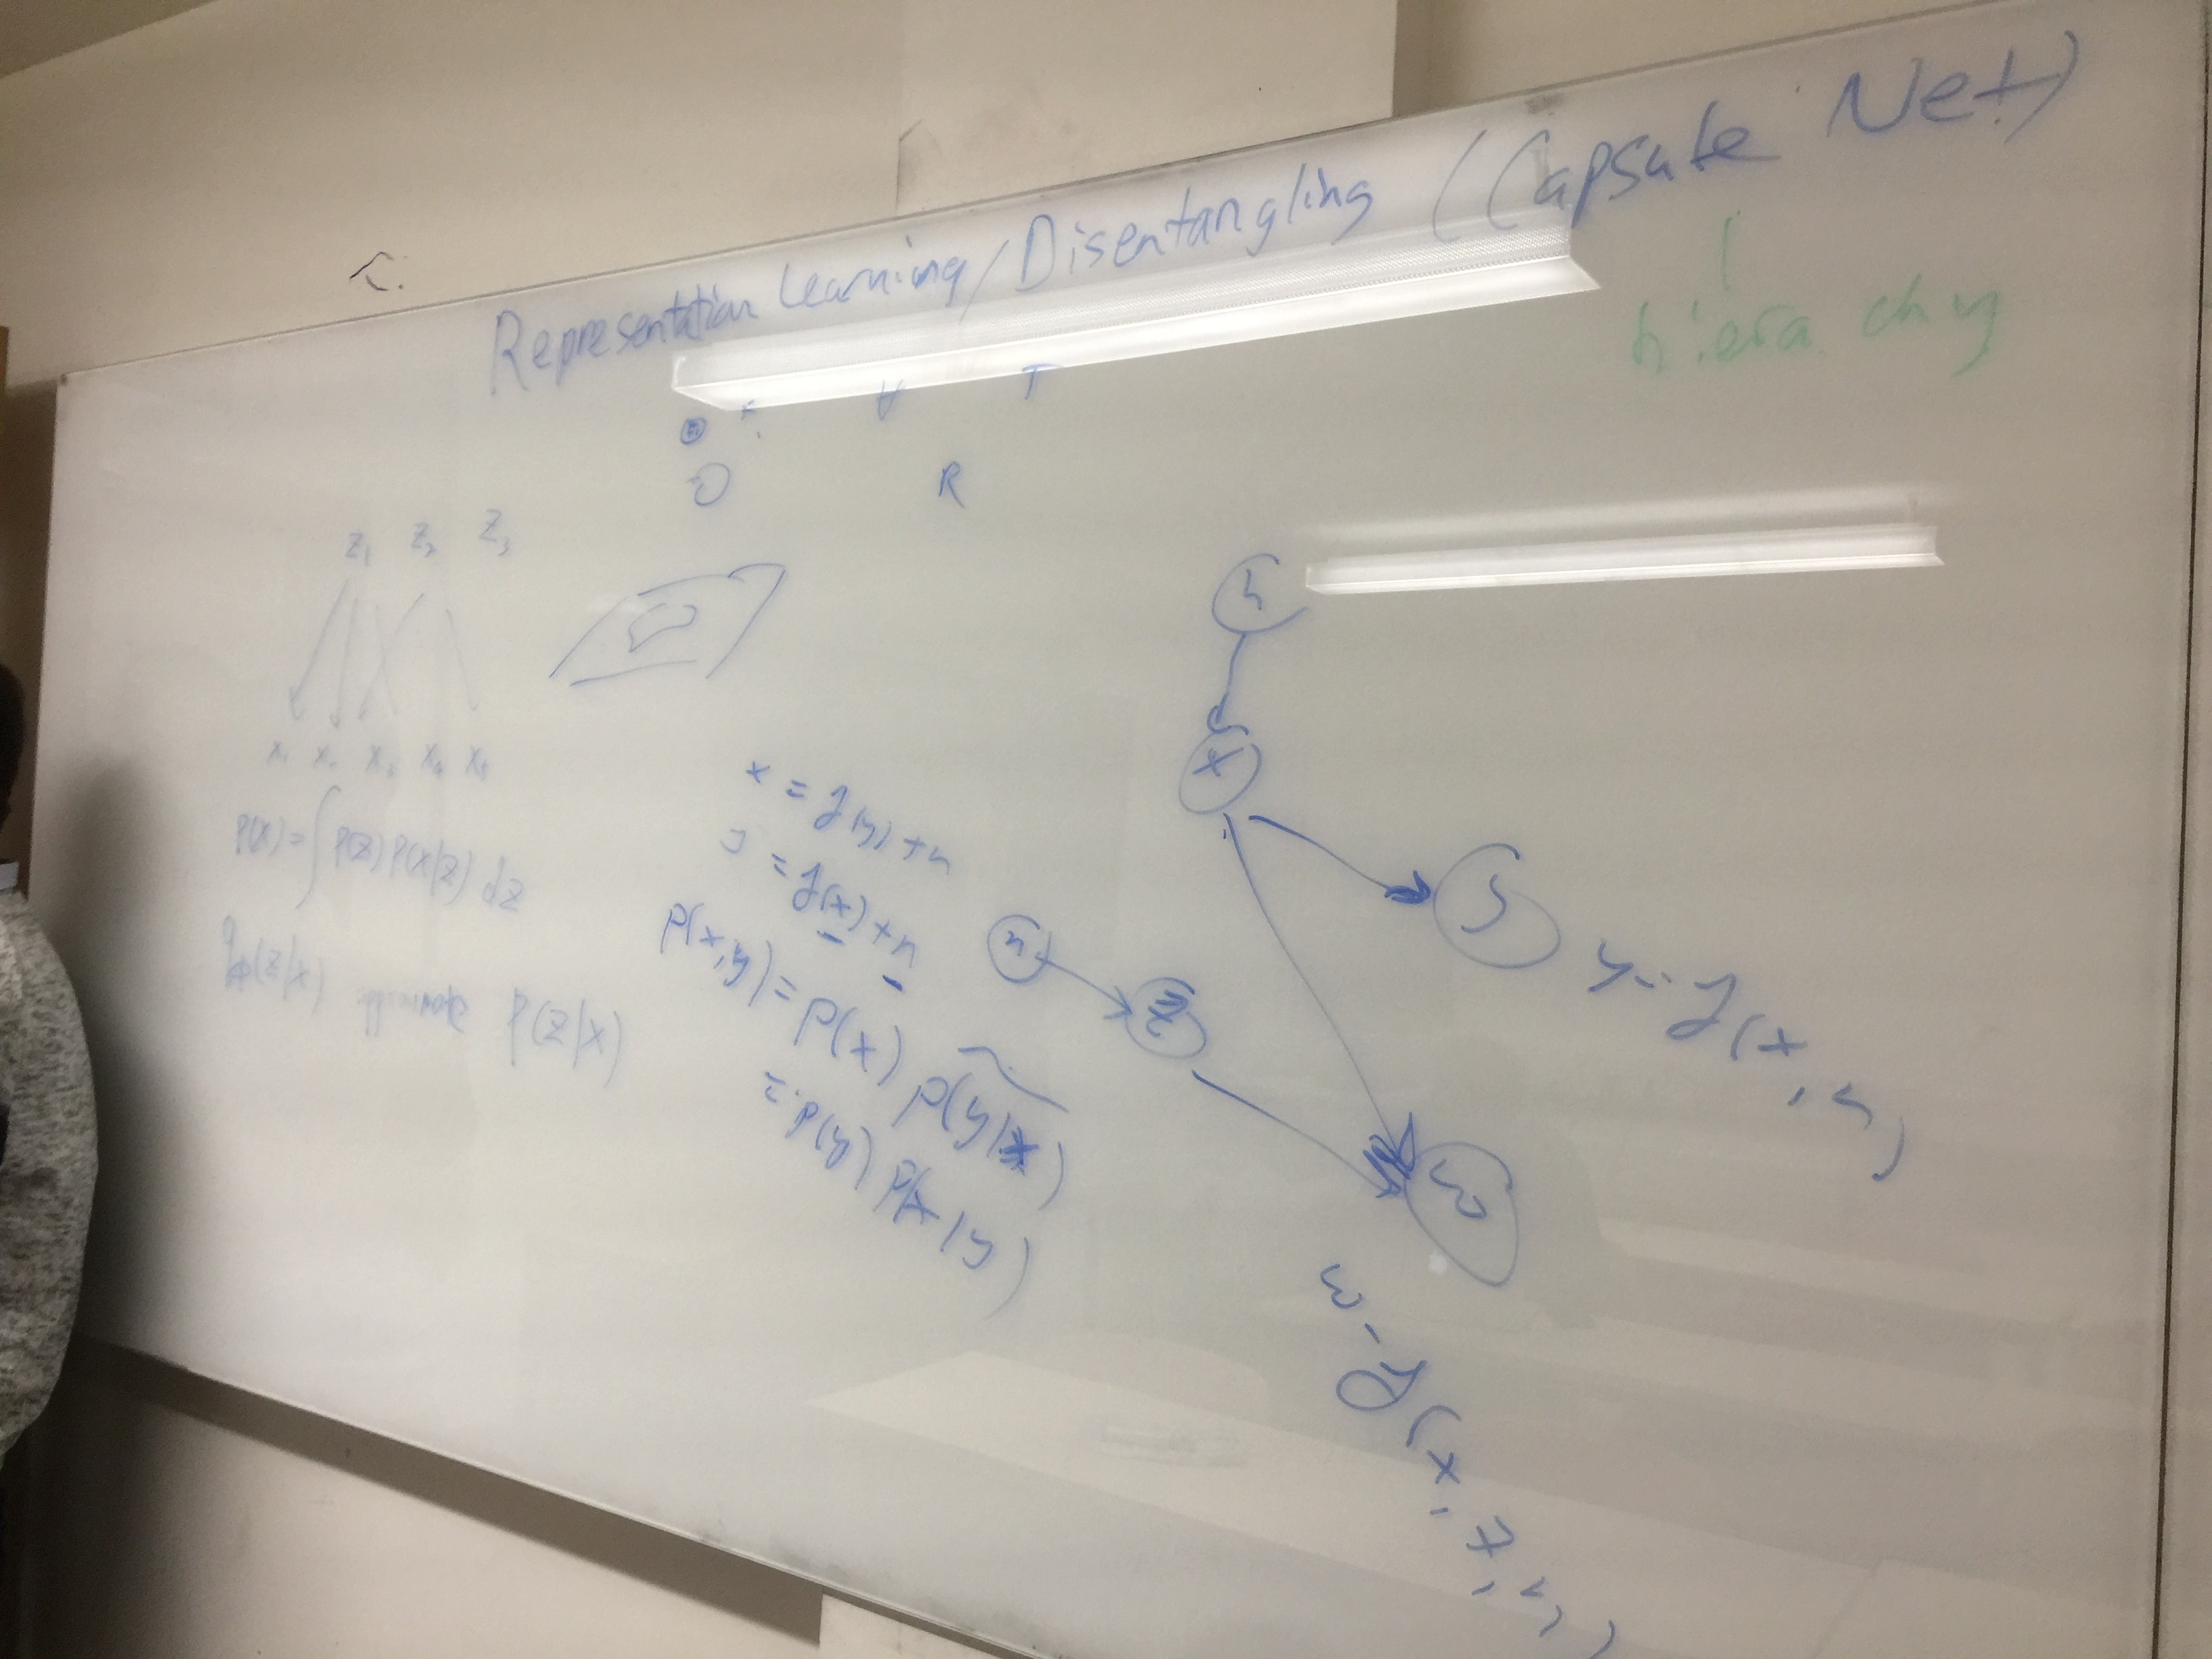 Representation Learning/Disentangling (Capsule Net)
hierarchy
V T
R
z₁ z₂ z₃
x₁ x₂ x₃ x₄ x₅
p(x) = ∫ p(z) p(x|z) dz
qφ(z|x) approximate p(z|x)
x = f(y) + n
y = f(x) + n
p(x,y) = p(x) p(y|x)
= p(y) p(x|y)
n
x
y
y = f(x, n)
n
z
w
w = f(x, z, n)